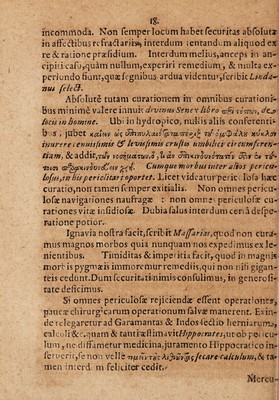 18.
incommoda. Non semper locum habet securitas absoluta
in affectibus refractariis, interdum tentandum aliquod ex
re & ratione præsidium. Interdum melius, anceps in an-
cipiti casu, quàm nullum, experiri remedium, & multa ex-
periundo fiunt, quæ segnibus ardua videntur, scribit Linda-
nus select.
Absolutè tutam curationem in omnibus curationi-
bus minimè valere innuit divinus Senex libro de
locis in homine. Ubi in hydropico, nihil aliis conferenti-
bus, jubet
inurere tenuissimis & levissimis crustis umbilici circumferen-
tiam, & addit,
Cumque morbus inter altos pericu-
losus, in his periclitari oportet. Licet videatur periculosa hæc
curatio, non tamen semper exitialis. Non omnes pericu-
losæ navigationes naufragæ: non omnes periculosæ cu-
rationes vitæ insidiosæ. Dubia salus interdum certâ despe-
ratione potior.
Ignavia nostra facit, scribit Massarias, quod non cura-
mus magnos morbos quia nunquam nos expedimus ex le-
nientibus. Timiditas & imperitia facit, quod in magnis
morbis pygmæis immoremur remediis, qui non nisi gigan-
teis cedunt. Dum securitati nimis consulimus, in generosi-
tate deficimus.
Si omnes periculosæ rejiciendæ essent operationes,
paucæ chirurgicarum operationum salvæ manerent. Exin-
de relegaretur ad Garamantas & Indos sectio herniarum,
calculi &c. quam & tanti æstimavit Hippocrates, ut ob pericu-
lum, ne diffametur medicina, juramento Hippocratico in-
seruerit, se non velle secare calculum, & ta-
men interdum feliciter cedit.
Mercu-